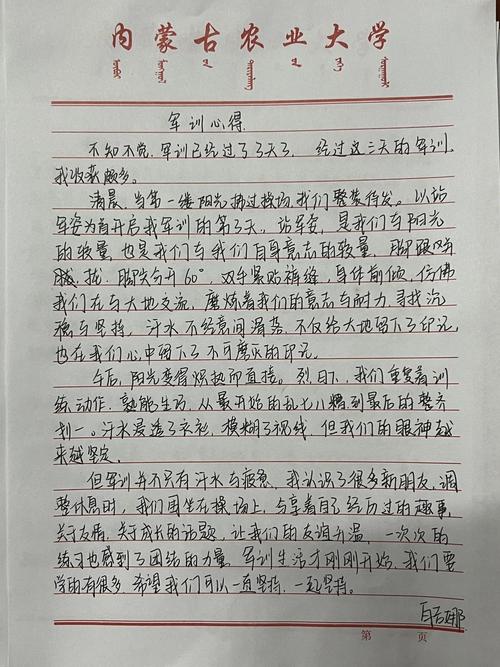 内蒙古农业大学
军训心得
不知不觉,军训已经过了3天了,经过这三天的军训,
我收获颇多。
清晨,当第一缕阳光拂过操场,我们整装待发。以站
军姿为首开启我军训的第3天。站军姿,是我们与阳光
的较量,也是我们与我们自身意志的较量,脚跟
拢,脚尖分开60°,双手紧贴裤缝,身体前倾,仿佛
我们在与大地交流,磨炼着我们的意志与耐力,寻找沉
稳与坚持。汗水不经意间滑落,不仅给大地留下了印记,
也在我们心中留下了不可磨灭的印记。
午后,阳光变得炽热而直接。烈日下,我们重复着训
练动作,熟能生巧,从最开始的乱七八糟到最后的整齐
划一。汗水浸透了衣衫,模糊了视线,但我们的眼神越
来越坚定。
但军训并不只有汗水与疲惫,我认识了很多新朋友,调
整休息时,我们围坐在操场上,分享着自己经历过的趣事,
关于友情,关于成长的话题,让我们的友谊升温,一次次的
练习也感到了团结的力量,军训生活才刚刚开始,我们要
学的有很多,希望我们可以一直坚持,一起坚持。
第 页